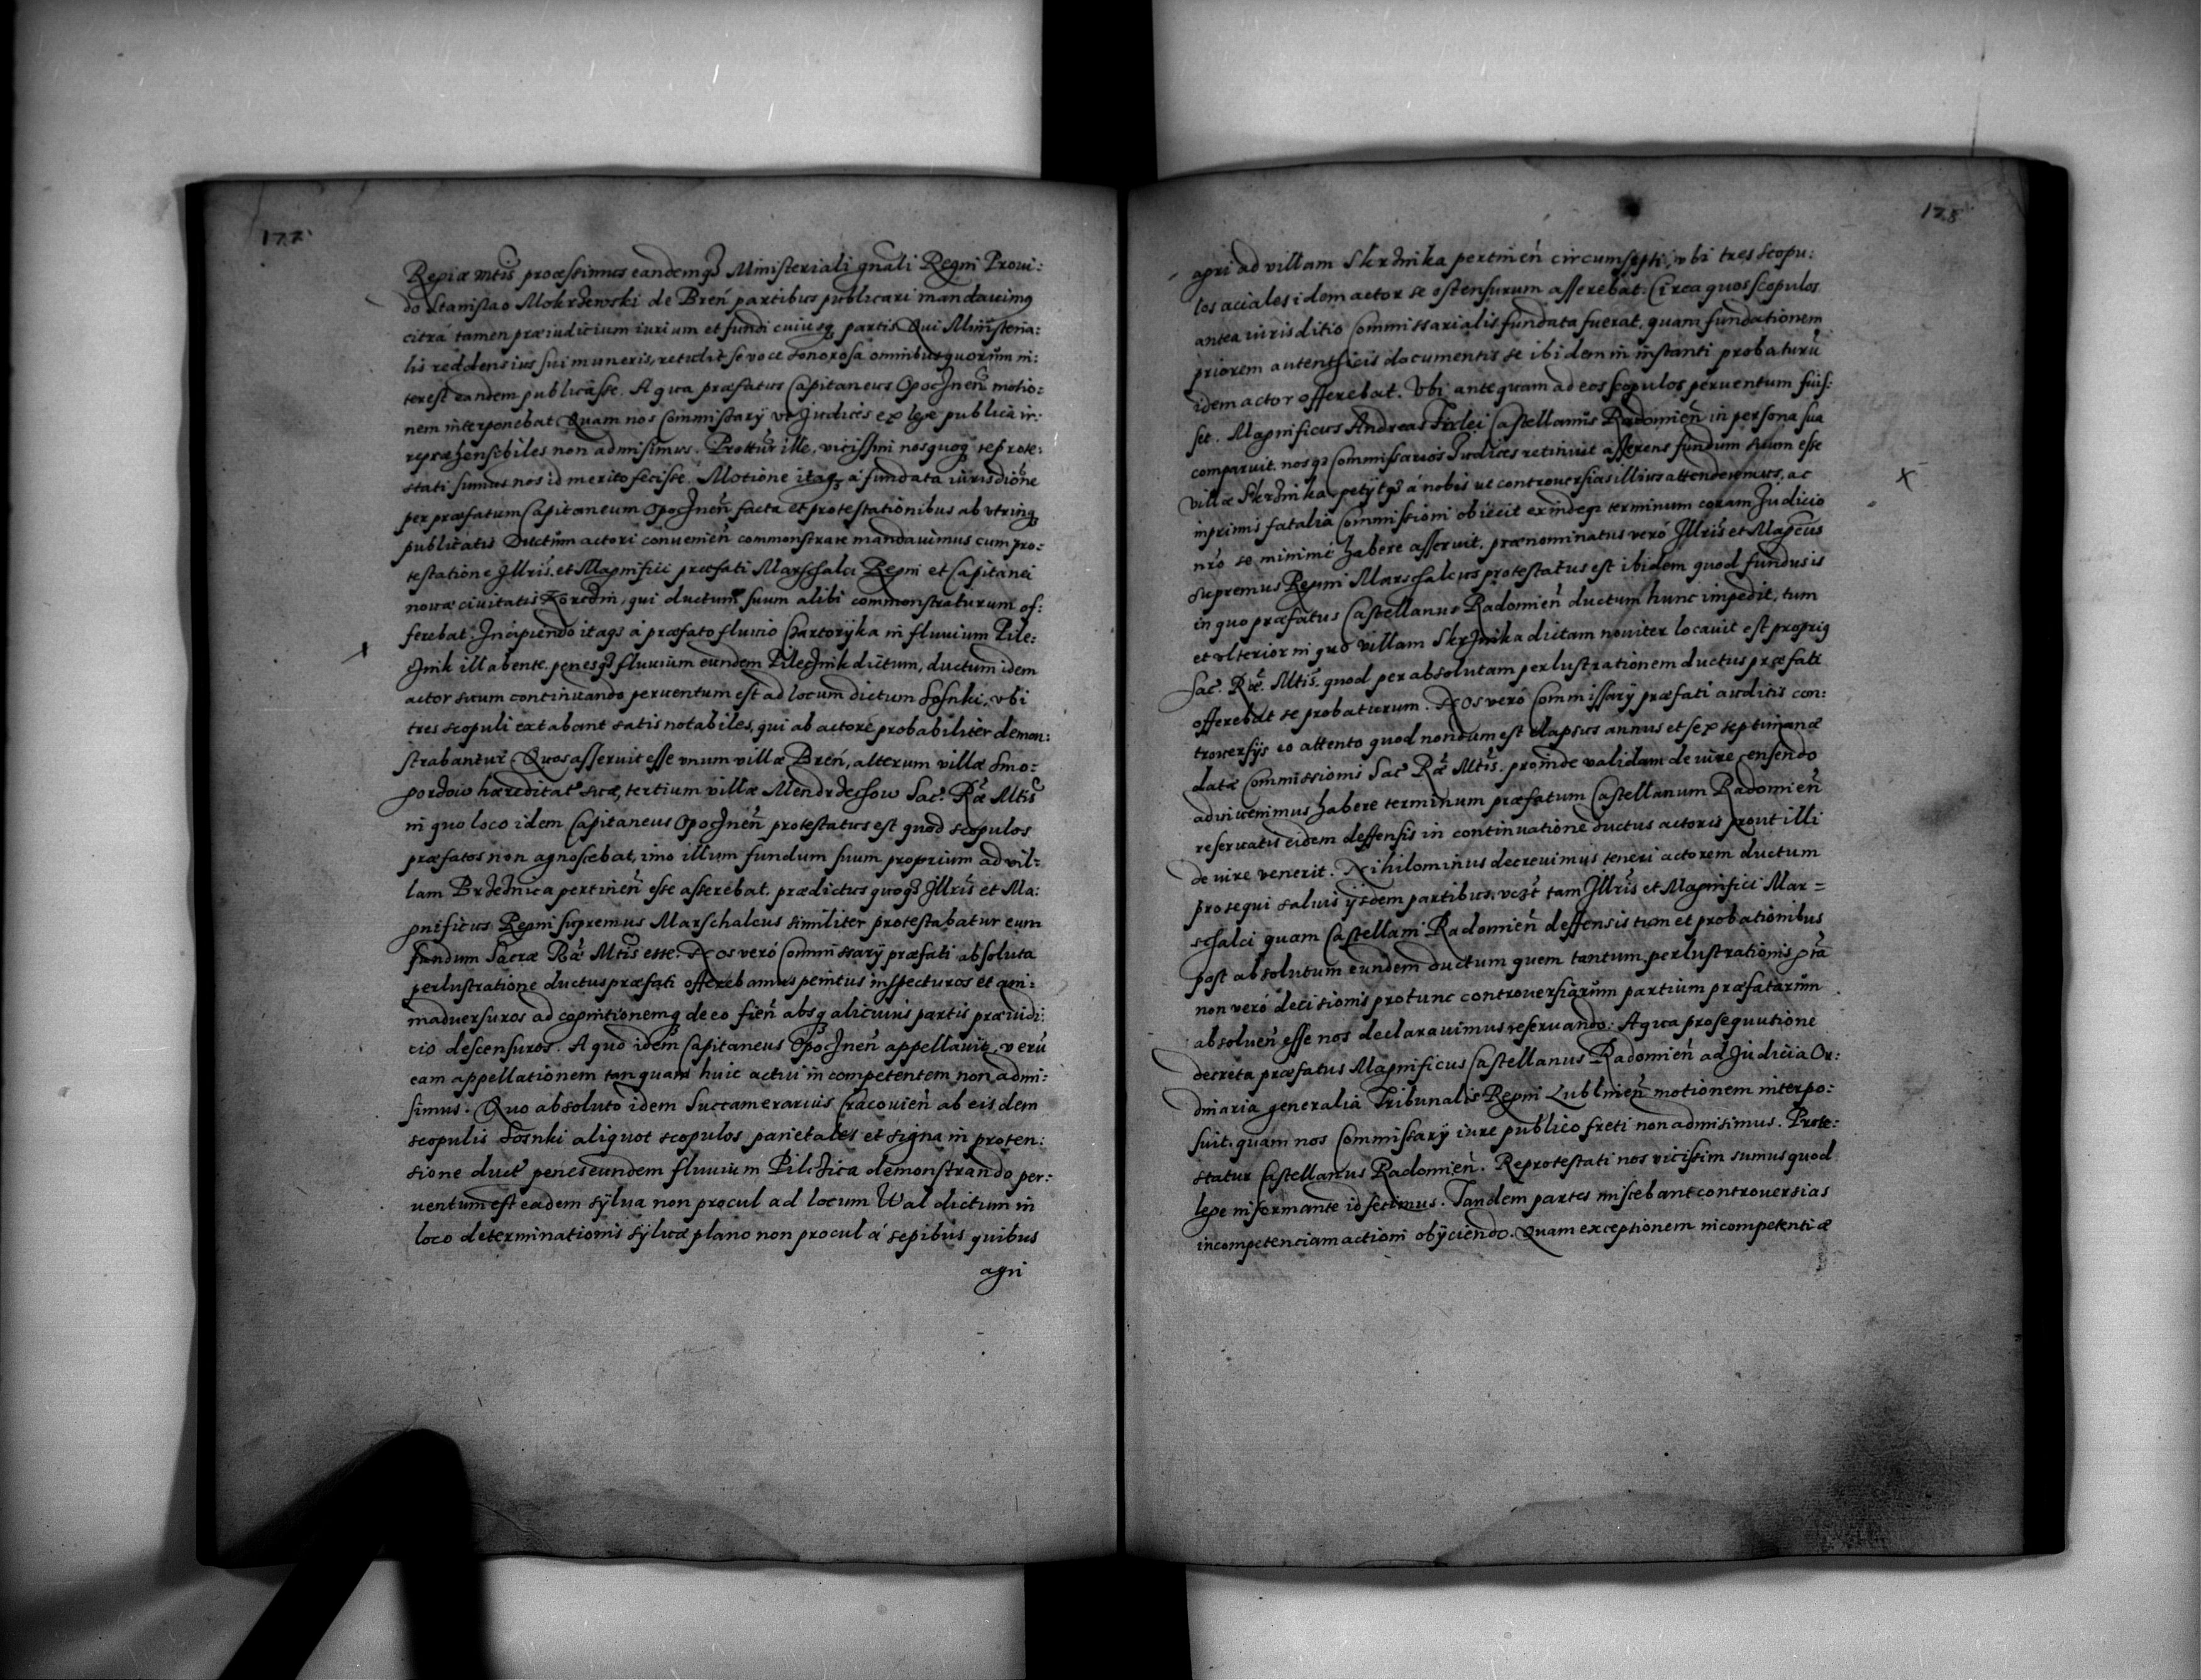 177
Regiæ Mtis præstimus eandemq3 Ministeriali gnali Regni Proui:
do Stanislao Mokrzewski de Breń partibus publicari mandauimus
citrá tamen præiudicium iurium et fundi cuiusq3 partis Qui Ministeria:
lis reddens ius sui muneris, retulit se voce sonorosa omnibus quorum in:
terest eandem publicasse. A qua præfatus Capitaneus Opocznen̄ motio:
nem interponebat Quam nos Commissarÿ vt Judices ex lege publica ir:
repræhensibiles non admisimus. Prottur ille, vicissim nos quoq3 reprote:
stati sumus nos id merito fecisse. Motione itaq3 á fundata iurisdione
per præfatum Capitaneum Opocznen̄ facta et protestationibus ab vtrinq3
publicatis Ductum actori conuenien̄ commonstrare mandauimus cum pro:
testatione Jllris. et Magnifici præfati Marschalci Regni et Capitanei
nouæ ciuitatis Korczin, qui ductum suum alibi commonstraturum of:
ferebat. Incipiendo itaq3 á præfato fluuio Czartoryka in fluuium Pile:
cznik illabente. penesq3 fluuium eundem Pilecznik dictum, ductum idem
actor suum continuando peruentum est ad locum dictum Sosnki, vbi
tres scopuli extabant satis notabiles, qui ab actore probabiliter demon:
strabantur Quos asseruit esse vnum villæ Breń, alterum villæ Smo:
gorzow hæreditat suæ, tertium villæ Mendrzechow Sac. Ræ Mtis
in quo loco idem Capitaneus Opocznen̄ protestatus est quod scopulos
præfatos non agnoscebat, imo illum fundum suum proprium ad vil:
lam Brzeznica pertinen̄ esse asserebat. prædictus quoq3 Jllris et Ma:
gnificus Regni supremus Marschalcus similiter protestabatur eum
fundum Sacræ Ræ Mtis esse. Nos veró Commissarÿ præfati absoluta
perlustratione ductus præfati offerebamus penitus inspecturos et ani:
maduersuros ad cognitionemq3 de eo fien̄ absq3 alicuius partis præiudi:
cio descensuros. A quo idem Capitaneus Opocznen̄ appellauit, verū
eam appellationem tanquam huic actui incompetentem non admi:
simus. Quo absoluto idem Succamerarius Cracouien̄ ab eisdem
scopulis Sosnki aliquot scopulos parietales et signa in proten:
sione duct penes eundem fluuium Pilczica demonstrando per:
uentum est eadem sylua non procul ad locum Wal dictum in
loco determinationis syluæ plano non procul á sepibus quibus
agri
178
agri ad villam Skrzinka pertinen̄ circumsepti, vbi tres scopu:
los aciales idem actor se ostensurum asserebat. Circa quos scopulos
antea iurisditio Commissarialis fundata fuerat, quam fundationem
priorem autenthicis documentis se ibidem in instanti probaturū
idem actor offerebat. Vbi antequam ad eos scopulos peruentum fuis:
set. Magnificus Andreas Firlei Castellanus Radomien̄ in persona sua
comparuit. nosq3 Commissarios Judices retinuit asserens fundum suum esse
villæ Skrzinka, petÿtq3 á nobis ut controuersias illius attenderemus, ac
inprimis fatalia Commissioni obiecit exindeq3 terminum coram Judicio
nro se minimé habere asseruit. prænominatus veró Jllris et Magcus
supremus Regni Marschalcus protestatus est ibidem quod fundus is
in quo præfatus Castellanus Radomien̄ ductum hunc impedit, tum
et vlterior in quo villam Skrzinka dictam nouiter locauit est proprius
Sac. Ræ. Mtis. quod per absolutam perlustrationem ductus præfati
offerebat se probaturum. Nos veró Commissarÿ præfati auditis con:
trouersÿs eo attento quod nondum est elapsus annus et sex septimanæ
datæ Commissionis Sac Ræ Mtis. proinde validam de iure censendo
adinuenimus habere terminum præfatum Castellanum Radomien̄
reseruatis eidem deffensis in continuatione ductus actoris prout illi
de iure venerit. Nihilominus decreuimus teneri actorem ductum
prosequi saluis ÿsdem partibus. vczt tam Jllris et Magnifici Mar=
schalci quam Castellani Radomien̄ deffensis tum et probationibus
post absolutum eundem ductum quem tantum perlustrationis
non veró decisionis protunc controuersiarum partium præfatarum
absoluen̄ esse nos declarauimus reseruando. A qua prosequutione
decreta præfatus Magnificus Castellanus Radomien̄ ad Judicia Or:
dinaria generalia Tribunalis Regni Lublinen̄ motionem interpo:
suit. quam nos Commissarÿ iure publico freti non admisimus. Prote:
statur Castellanus Radomien̄. Reprotestati nos vicissim sumus quod
lege informante id fecimus. Tandem partes miscebant controuersias
incompetenciam actioni obÿciendo. Quam exceptionem incompetentiæ